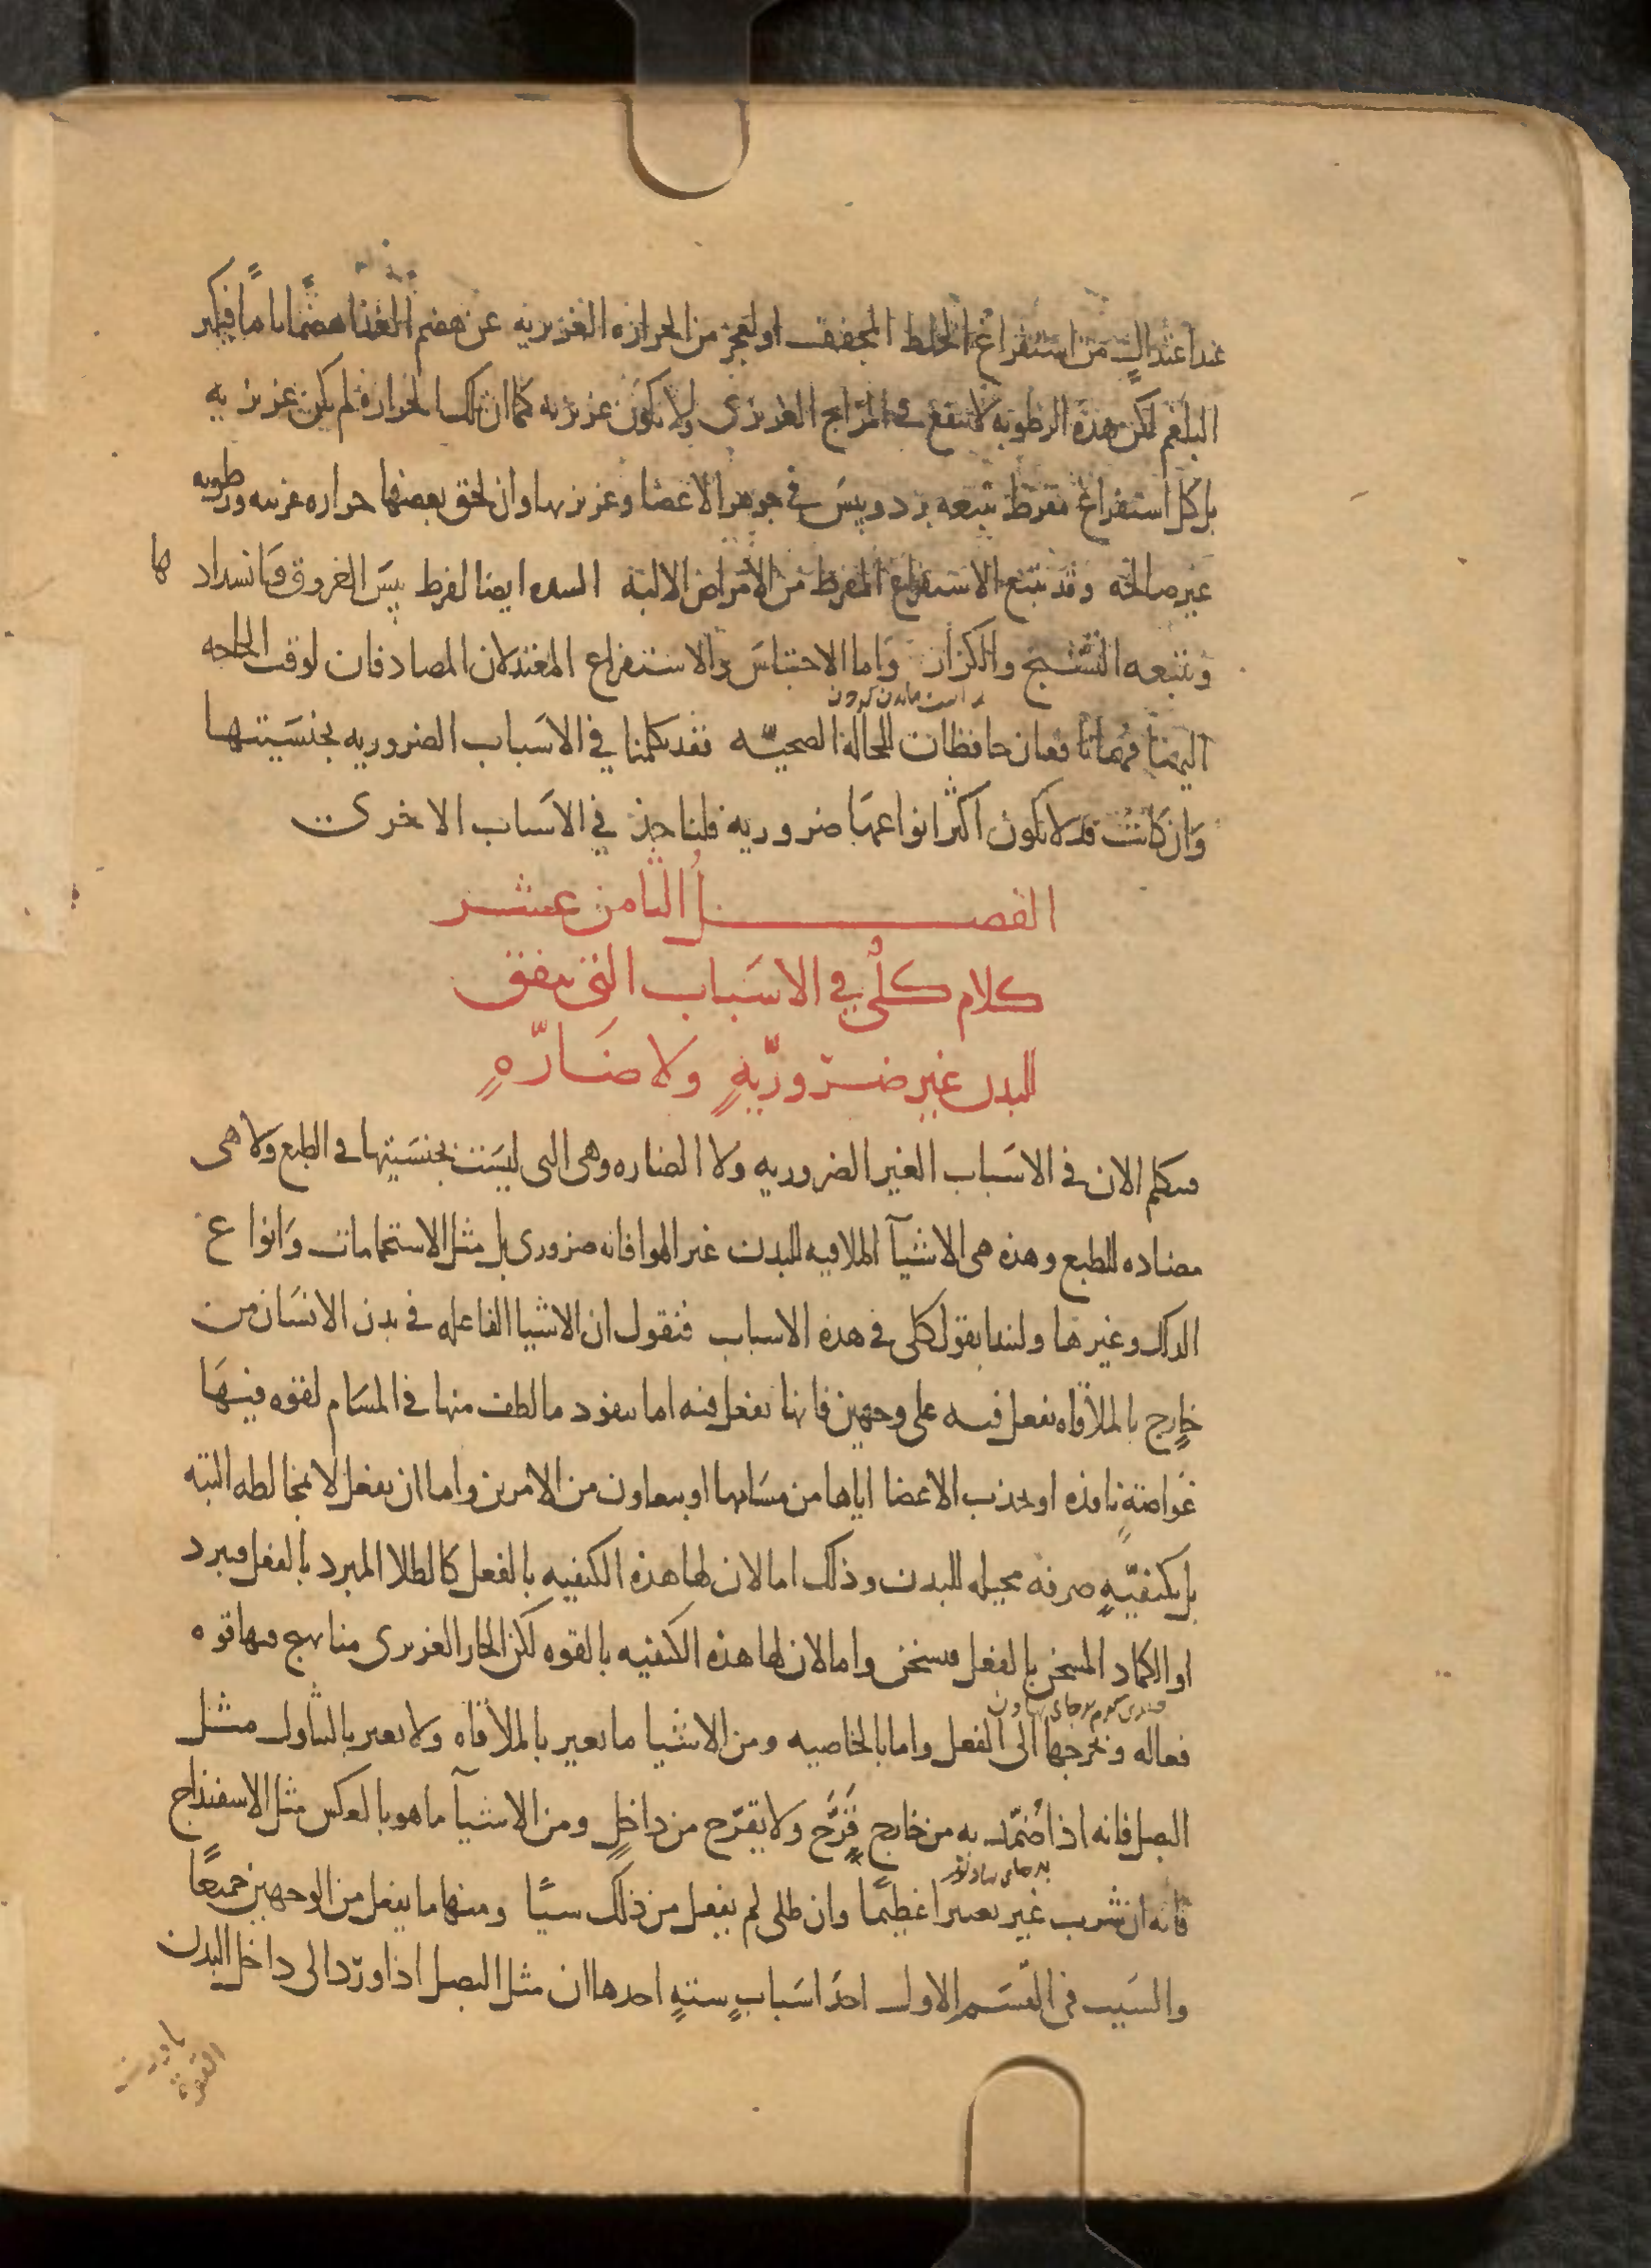 عند اعتدالٍ من استفراغ الخلط المجفف او لعجز من الحرارة الغريزيه عن هضم الغذا هضمًا تامًا فيكثر
البلغم لكن هذه الرطوبه لا تنفع في المزاج الغريزى ولا تكون غريزيه كما ان تلك الحراره لم تكن غريزيه
بل كل استفراغ مفرط تتبعه برد ويبس في جوهر الاعضا وغريزتها وان لحق بعضها حراره غريبه ورطوبه
غير صالحه وقد يتبع الاستفراغ المفرط من الامراض الاليه السده ايضا لفرط يبس العروق وانسداد ها
ويتبعه التشنج والكزاز واما الاحتباس والاستفراغ المعتدلان المصادفان لوقت الحاجه
اليهما فهما نافعان حافظان للحالة الصحيّه فقد تكلمنا في الاسباب الضروريه بجنسيتها
وان كانت قد لا تكون اكثر انواعها ضروريه فلناخذ في الاسباب الاخرى
الفصل الثامن عشر
كلام كلّي في الاسباب التى تتفق
للبدن غير ضروريّةٍ ولا ضارّةٍ
فنتكلم الان في الاسباب الغير الضروريه ولا الضاره وهى التى ليست بجنسيتها في الطبع ولا هى
مضاده للطبع وهذه هى الاشيآ الملاقيه للبدن غير الهوا فانه ضرورى بل مثل الاستحمامات وانواع
الدلك وغيرها ولنبدا بقول كلى في هذه الاسباب فنقول ان الاشيا الفاعله في بدن الانسان من
خارج بالملاقاه تفعل فيه على وجهين فانها تفعل فيه اما بنفود ما لطف منها في المسام لقوه فيها
غواصةٍ نافذه او بجذب الاعضا اياها من مسامها او بتعاون من الامرين واما ان تفعل لا بمخالطه البته
بل بكيفيّةٍ صرفه محيله للبدن وذلك اما لان لها هذه الكيفيه بالفعل كالطلا المبرد بالفعل فيبرد
او الكماد المسخن بالفعل فيسخن واما لان لها هذه الكيفيه بالقوه لكن الحار الغريزى منا يهيج فيها قوه
فعاله ويخرجها الى الفعل واما بالخاصيه ومن الاشيا ما تغير بالملاقاه ولا تغير بالتناول مثل
البصل فانه اذا ضمّد به من خارج قرّح ولا يقرّح من داخلٍ ومن الاشيآ ما هو بالعكس مثل الاسفيذاج
فانه ان شرب غير تغييرا عظيمًا وان طلى لم يفعل من ذلك شيًا ومنها ما يفعل من الوجهين جميعًا
والسبب في القسم الاول احد اسبابٍ ستةٍ احدها ان مثل البصل اذا ورد الى داخل البدن
بادرت
القوة